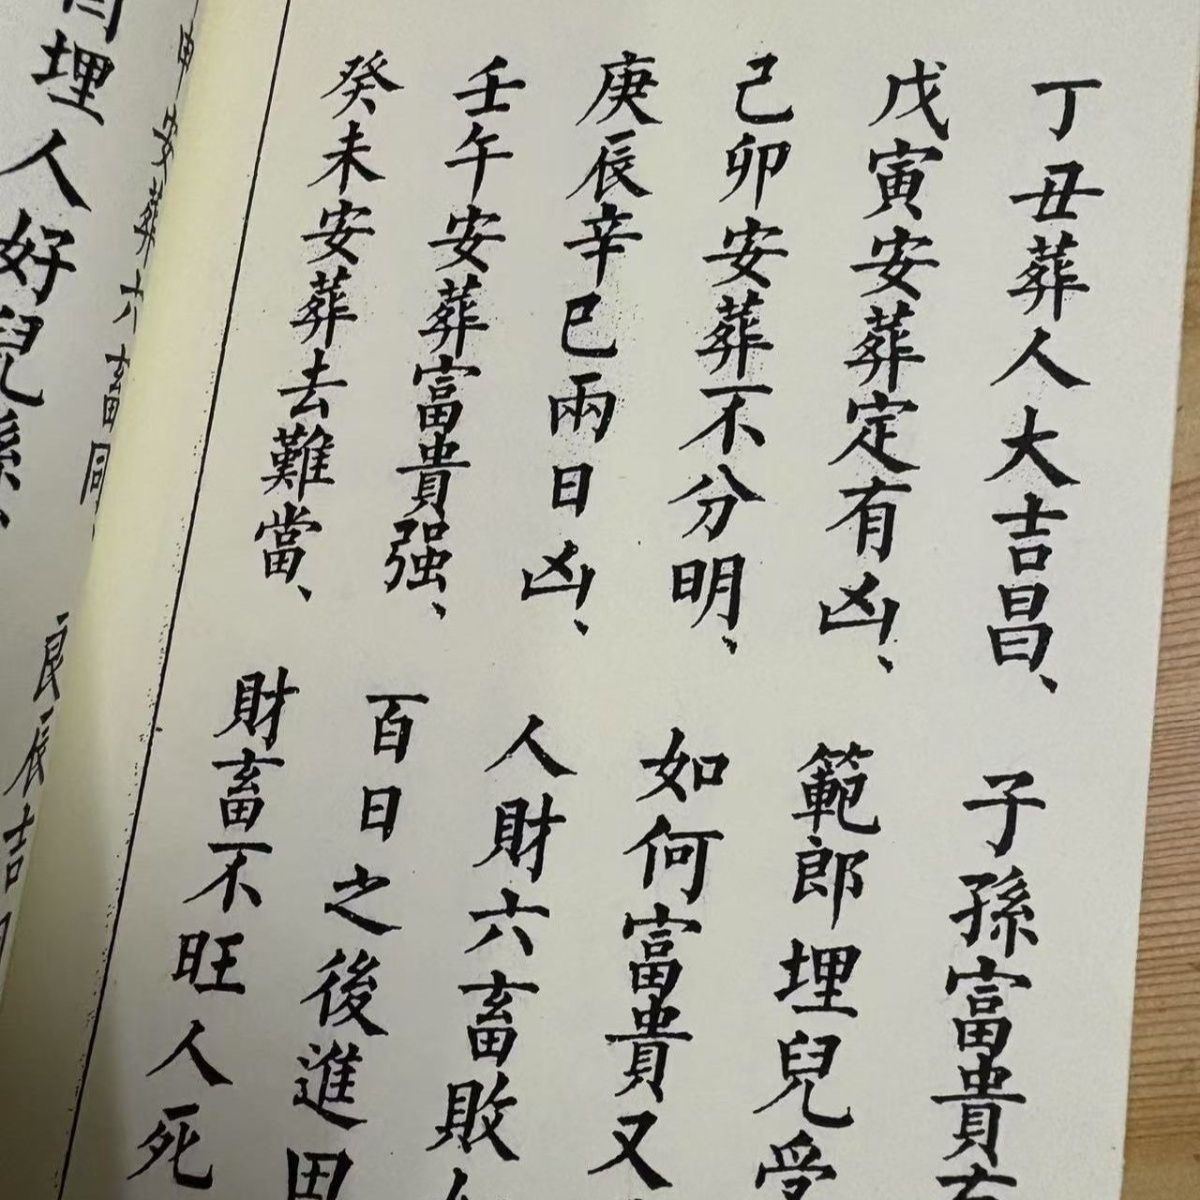 丁丑葬人大吉昌、子孫富貴
戊寅安葬定有凶、範郎埋兒受
己卯安葬不分明、如何富貴又
庚辰辛巳兩日凶、人財六畜敗
壬午安葬富貴强、百日之後進田
癸未安葬去難當、財畜不旺人死
申安葬六畜 良辰吉
埋人好兒孫、